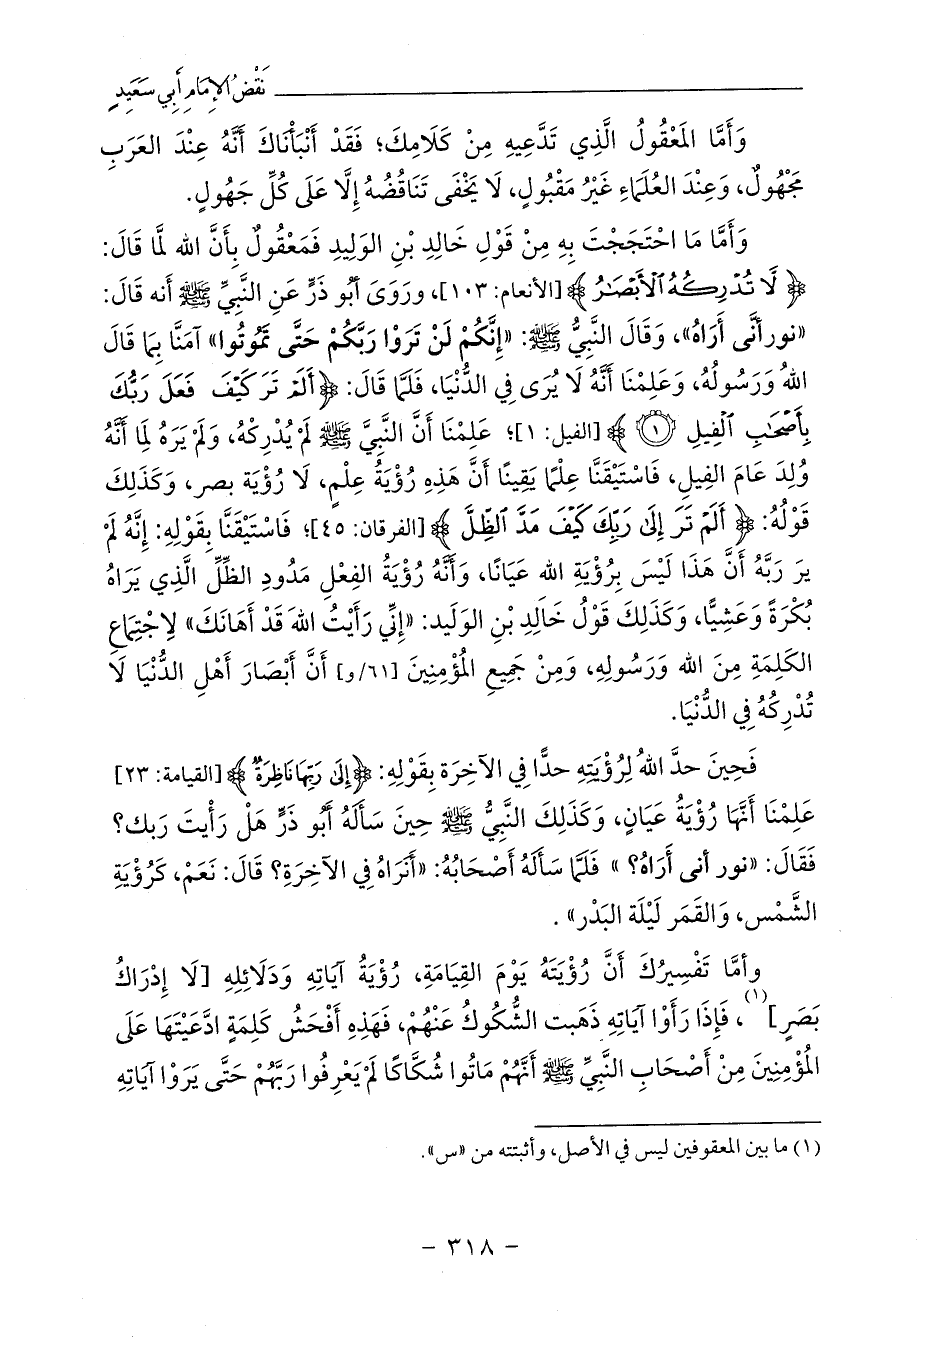 نَقْضُ الإِمَامِ أَبِي سَعِيدٍ
وَأَمَّا المَعْقُولُ الَّذِي تَدَّعِيهِ مِنْ كَلَامِكَ؛ فَقَدْ أَنْبَأْنَاكَ أَنَّهُ عِنْدَ العَرَبِ
مَجْهُولٌ، وَعِنْدَ العُلَمَاءِ غَيْرُ مَقْبُولٍ، لَا يَخْفَى تَنَاقُضُهُ إِلَّا عَلَى كُلِّ جَهُولٍ.
وَأَمَّا مَا احْتَجَجْتَ بِهِ مِنْ قَوْلِ خَالِدِ بْنِ الوَلِيدِ فَمَعْقُولٌ بِأَنَّ الله لَمَّا قَالَ:
﴿لَا تُدْرِكُهُ الْأَبْصَارُ﴾ [الأنعام: ١٠٣]، ورَوَى أَبُو ذَرٍّ عَنِ النَّبِيِّ ﷺ أنه قَالَ:
«نور أنَّى أَرَاهُ»، وَقَالَ النَّبِيُّ ﷺ: «إِنَّكُمْ لَنْ تَرَوْا رَبَّكُمْ حَتَّى تَمُوتُوا» آمَنَّا بِمَا قَالَ
اللهُ وَرَسُولُهُ، وَعَلِمْنَا أَنَّهُ لَا يُرَى فِي الدُّنْيَا، فَلَمَّا قَالَ: ﴿أَلَمْ تَرَ كَيْفَ فَعَلَ رَبُّكَ
بِأَصْحَابِ الْفِيلِ ۝١﴾ [الفيل: ١]؛ عَلِمْنَا أَنَّ النَّبِيَّ ﷺ لَمْ يُدْرِكْهُ، وَلَمْ يَرَهُ لِمَا أَنَّهُ
وُلِدَ عَامَ الفِيلِ، فَاسْتَيْقَنَّا عِلْمًا يَقِينًا أَنَّ هَذِهِ رُؤْيَةُ عِلْمٍ، لَا رُؤْيَة بصر، وَكَذَلِكَ
قَوْلُهُ: ﴿أَلَمْ تَرَ إِلَى رَبِّكَ كَيْفَ مَدَّ الظِّلَّ﴾ [الفرقان: ٤٥]؛ فَاسْتَيْقَنَّا بِقَوْلِهِ: إِنَّهُ لَمْ
يرَ رَبَّهُ أَنَّ هَذَا لَيْسَ بِرُؤْيَةِ الله عَيَانًا، وَأَنَّهُ رُؤْيَةُ الفِعْلِ مَمْدُودِ الظِّلِّ الَّذِي يَرَاهُ
بُكْرَةً وَعَشِيًّا، وَكَذَلِكَ قَوْلُ خَالِدِ بْنِ الوَلَيد: «إِنِّي رَأَيْتُ اللهَ قَدْ أَهَانَكَ» لِاجْتِمَاعِ
الكَلِمَةِ مِنَ الله وَرَسُولِهِ، وَمِنْ جَمِيعِ المُؤْمِنِينَ [٦١/و] أَنَّ أَبْصَارَ أَهْلِ الدُّنْيَا لَا
تُدْرِكُهُ فِي الدُّنْيَا.
فَحِينَ حدَّ اللهُ لِرُؤْيَتِهِ حدًّا فِي الآخِرَةِ بِقَوْلِهِ: ﴿إِلَى رَبِّهَا نَاظِرَةٌ﴾ [القيامة: ٢٣]
عَلِمْنَا أَنَّهَا رُؤْيَةُ عَيَانٍ، وَكَذَلِكَ النَّبِيُّ ﷺ حِينَ سَأَلَهُ أَبُو ذَرٍّ هَلْ رَأيتَ رَبك؟
فَقَالَ: «نور أنى أَرَاهُ؟ » فَلَمَّا سَأَلَهُ أَصْحَابُهُ: «أَنَرَاهُ فِي الآخِرَةِ؟ قَالَ: نَعَمْ، كَرُؤْيَةِ
الشَّمْس، وَالقَمَر لَيْلَة البَدْر» .
وأمَّا تَفْسِيرُكَ أَنَّ رُؤْيَتَهُ يَوْمَ القِيَامَةِ، رُؤْيَةُ آيَاتِهِ وَدَلَائِلِهِ [لَا إِدْرَاكُ
بَصَرٍ](١)، فَإِذَا رَأَوْا آيَاتِهِ ذَهَبت الشُّكُوكُ عَنْهُمْ، فَهَذِهِ أَفْحَشُ كَلِمَةٍ ادَّعَيْتَهَا عَلَى
المُؤْمِنِينَ مِنْ أَصْحَابِ النَّبِيِّ ﷺ أَنَّهُمْ مَاتُوا شُكَّاكًا لَمْ يَعْرِفُوا رَبَّهُمْ حَتَّى يَرَوْا آيَاتِهِ
(١) ما بين المعقوفين ليس في الأصل، وأثبتته من «س».
– ٣١٨ –